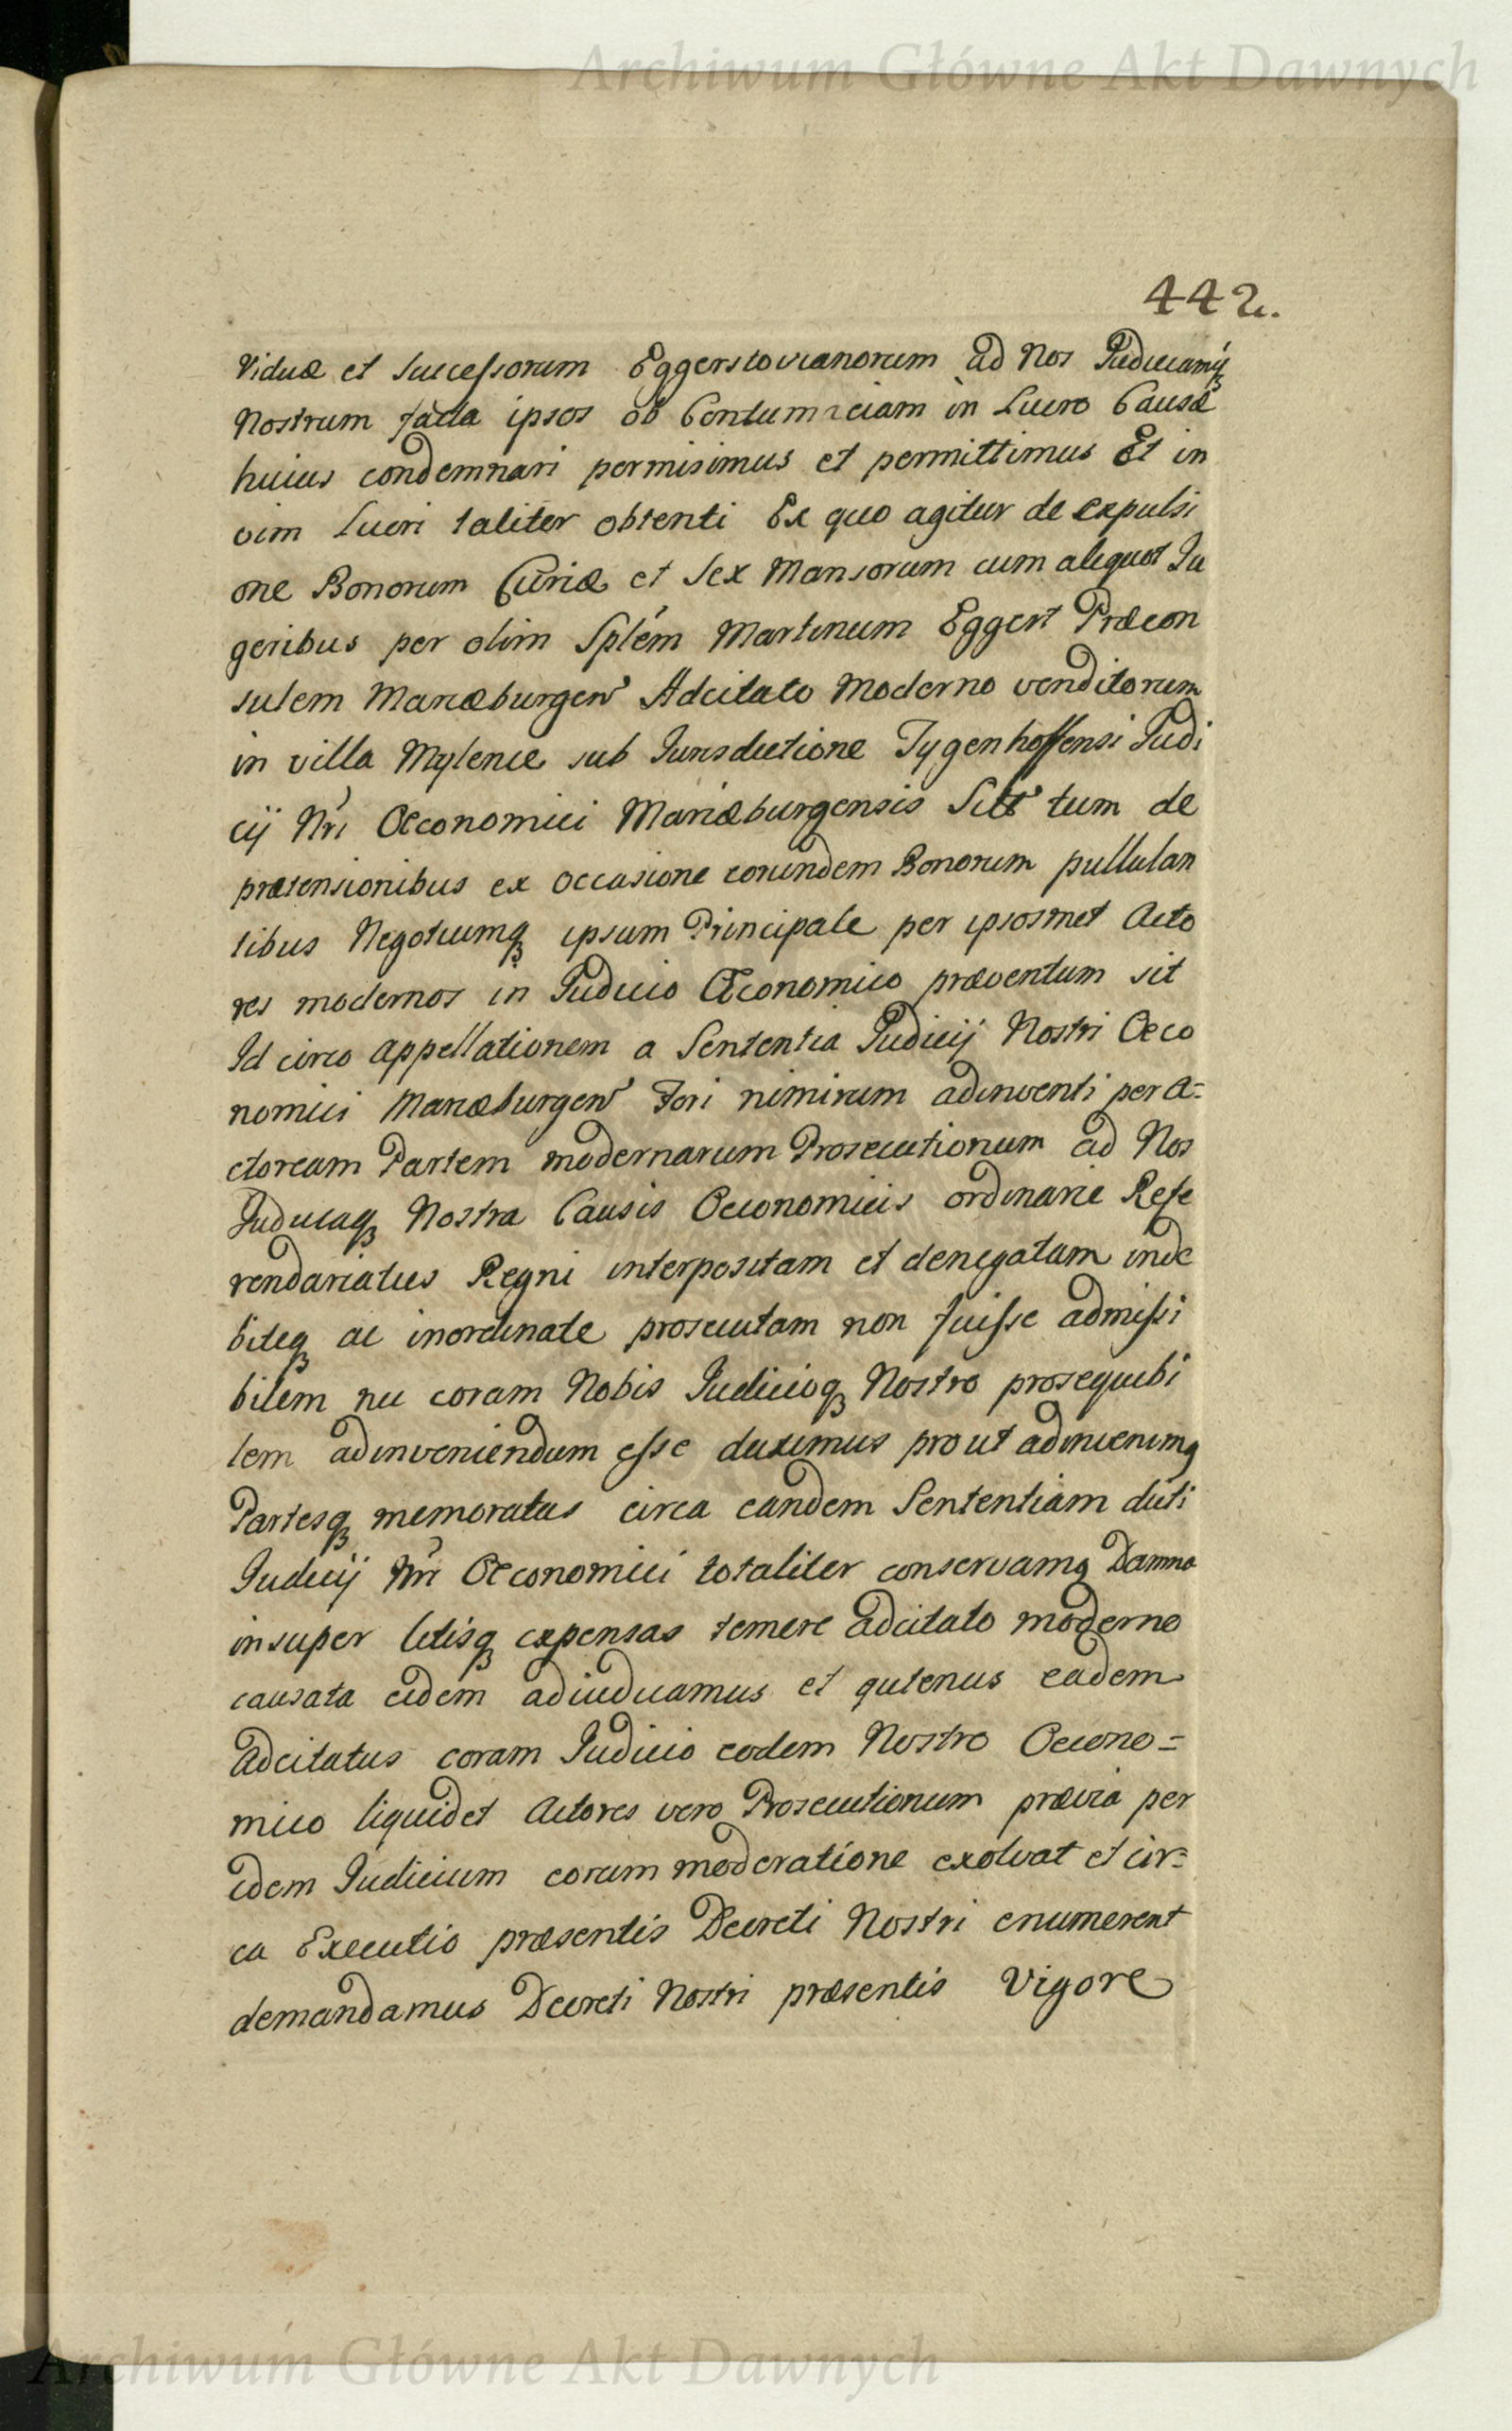 Archiwum Główne Akt Dawnych
442.
Viduæ et Successorum Eggerstovianorum ad Nos Judiciumq
Nostrum facta ipsos ob Contumaciam in Lucro Causæ
huius condemnari permisimus et permittimus Et in
vim Lucri taliter obtenti Ex quo agitur de expulsi
one Bonorum Curiæ et Sex Mansorum cum aliquot Ju
geribus per olim Splém Martinum Eggert Præcon
sulem Mariæburgen Adcitato Moderno venditorum
in villa Mylence sub Jurisdictione Tygenhoffensi Judi
cij Nri Œconomici Mariæburgensis Sitt tum de
prætensionibus ex occasione eorundem Bonorum pullulan
tibus Negotiumq ipsum Principale per ipsosmet Acto
res modernos in Judicio Œconomico præventum sit
Id circo appellationem a Sententia Judicij Nostri Œco
nomici Mariæburgen Fori nimirum adinventi per A=
ctoream Partem modernarum Prosecutionum ad Nos
Judiciaq Nostra Causis Oeconomicis ordinarie Refe
rendariatus Regni interpositam et denegatam inde
biteq ac inordinate prosecutam non fuisse admissi
bilem nec coram Nobis Judicioq Nostro prosequibi
lem adinveniendum esse duximus prout adinvenimq
Partesq memoratas circa eandem Sententiam dicti
Judicij Nri Œconomici totaliter conservamq Damna
insuper litisq expensas temere adcitato moderno
causata eidem adiudicamus et qutenus eadem
Adcitatus coram Judicio eodem Nostro Oecono=
mico liquidet Actores vero Prosecutionum prævia per
idem Judicium eorum moderatione exolvat et cir=
ca Executio præsentis Decreti Nostri enumerent
demandamus Decreti Nostri præsentis Vigore
Archiwum Główne Akt Dawnych